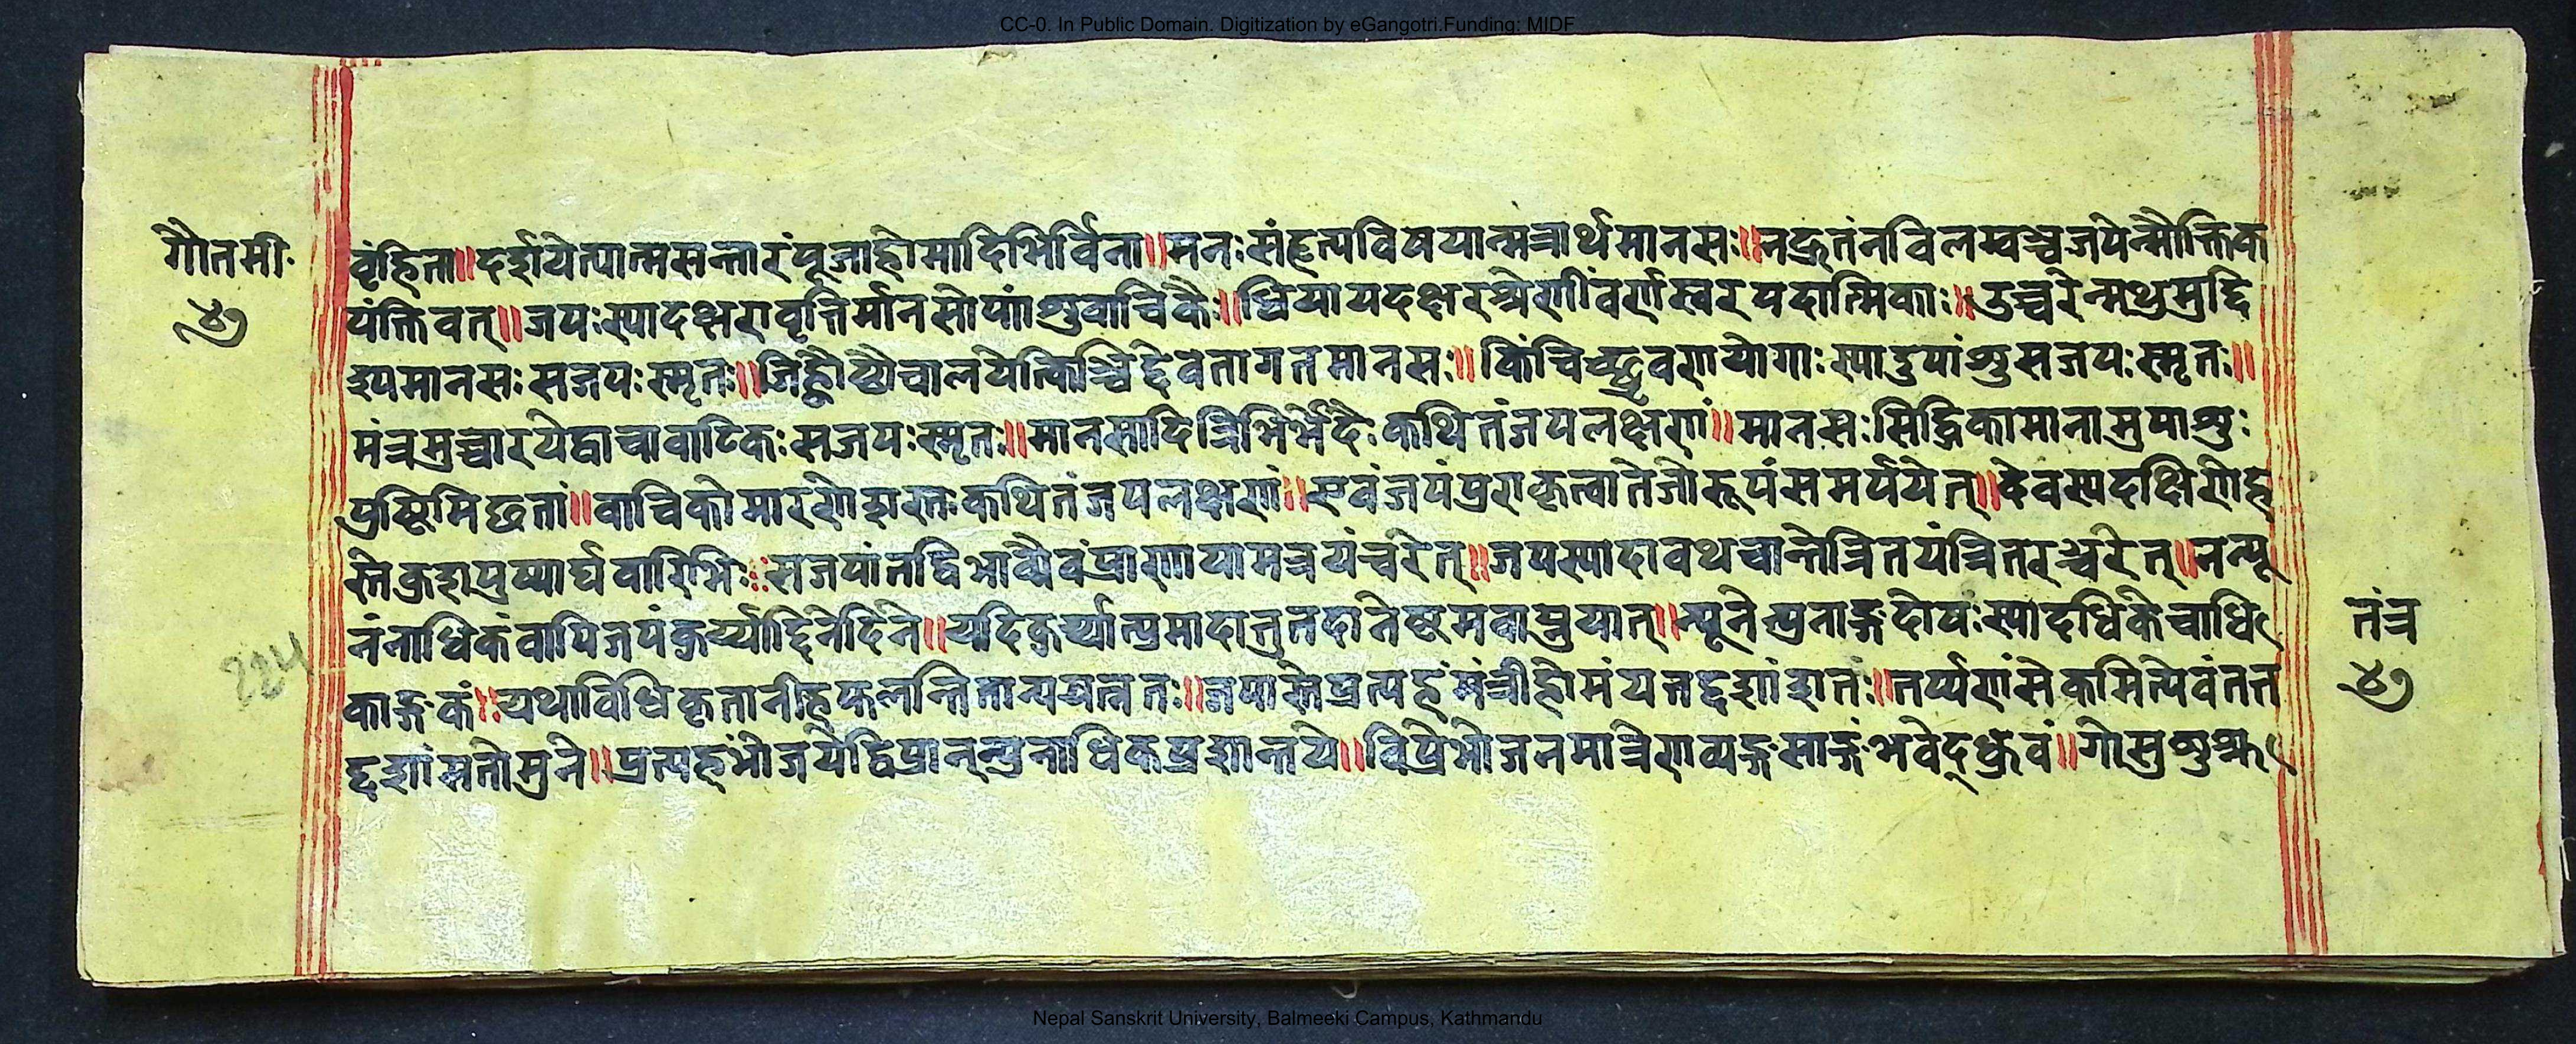 CC-0. In Public Domain. Digitization by eGangotri.Funding: MIDF
गौतमी
४७
वृंहिता॥दर्शयेत्यात्मसन्तारंपूजाहोमादिभिर्विना॥मनःसंहृत्यविषयान्मन्त्रार्थमानसः॥नद्रुतंनविलम्वञ्चजपेन्मौक्तिक
पंक्तिवत्॥जपःस्यादक्षरावृत्तिर्मानसोपांशुवाचिकैः॥धियायदक्षरश्रेणींवर्णस्वरपदात्मिकाः॥उच्चरेन्मथुमुद्दि
श्यमानसःसजपःस्मृतः॥जिह्वौष्ठौचालयेत्किञ्चिद्देवतागतमानसः॥किंचिच्छ्रवणयोगाःस्यादुपांशुसजपःस्मृतः॥
मंत्रमुच्चारयेद्वाचावाटिकःसजपःस्मृतः॥मानसादित्रिभिर्भेदैःकथितंजपलक्षणं॥मानसःसिद्धिकामानामुपाशुः
पुष्टिमिछतां॥वाचिकोमारणेशस्तःकथितंजपलक्षणं॥एवंजपंपुराकृत्वातेजोरूपंसमर्पयेत्॥देवस्यदक्षिणेह
स्तेकुशपुष्पार्घवारिभिः॥सजपांतद्विभाव्यैवंप्राणायामत्रयंचरेत्॥जपस्यादावथचान्तेत्रितयंत्रितरञ्चरेत्॥नन्यू
नंनाधिकंवापिजपंकुर्य्याद्दिनेदिने॥यदिकुर्य्यात्प्रमादात्तुतदानेष्टमवाप्नुयात्॥न्यूनेत्पुनाङ्गदोषःस्यादधिकेचाधि
काङ्गकं॥यथाविधिकृतानीहफलन्तितान्ययत्नतः॥जपान्तेप्रत्यहंमंत्रीहोमंयत्तद्दशांशतः॥तर्प्पणंसेकमित्येवंतत्त
द्दशांसतोमुने॥प्रत्यहंभोजयेद्विप्रान्न्पुनाधिकप्रशान्तये॥विप्रेभोजनमात्रेणव्यङ्गसाङ्गंभवेद्ध्रुवं॥गोसुशुह्म
तंत्र
४७
224
Nepal Sanskrit University, Balmeeki Campus, Kathmandu